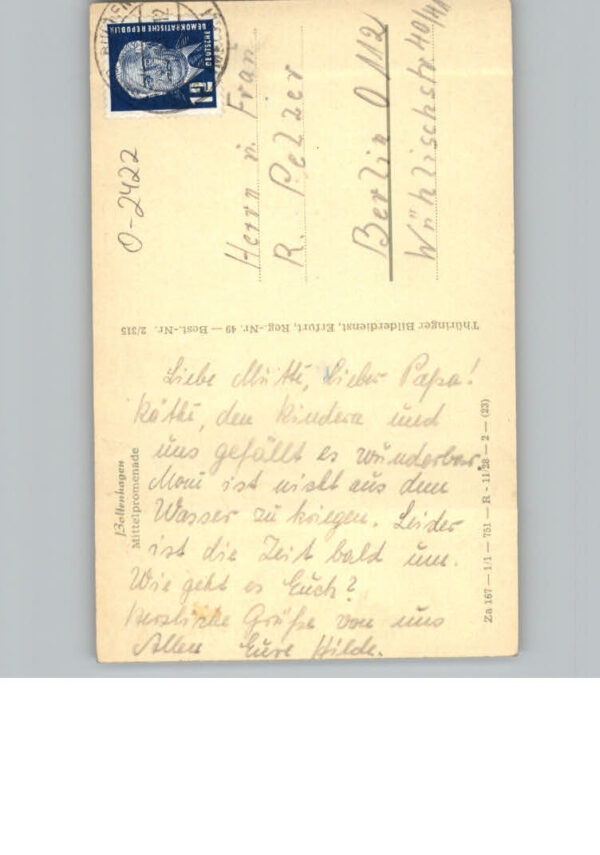 DEUTSCHE
DEMOKRATISCHE REPUBLIK
12
O-2422
Herrn u. Frau
R. Pelzer
Berlin O 112
Wühlischstr 40/41
Thüringer Bilderdienst, Erfurt, Reg.-Nr. 49 — Best.-Nr. 2/315
Boltenhagen
Mittelpromenade
Liebe Mutti, Lieber Papa!
Käthe, den Kindern und
uns gefällt es wunderbar.
Moni ist nicht aus dem
Wasser zu kriegen. Leider
ist die Zeit bald um.
Wie geht es Euch?
Herzliche Grüße von uns
Allen Eure Hilde.
Za 167 — 1/1 — 751 — R - 11/28 — 2 — (23)